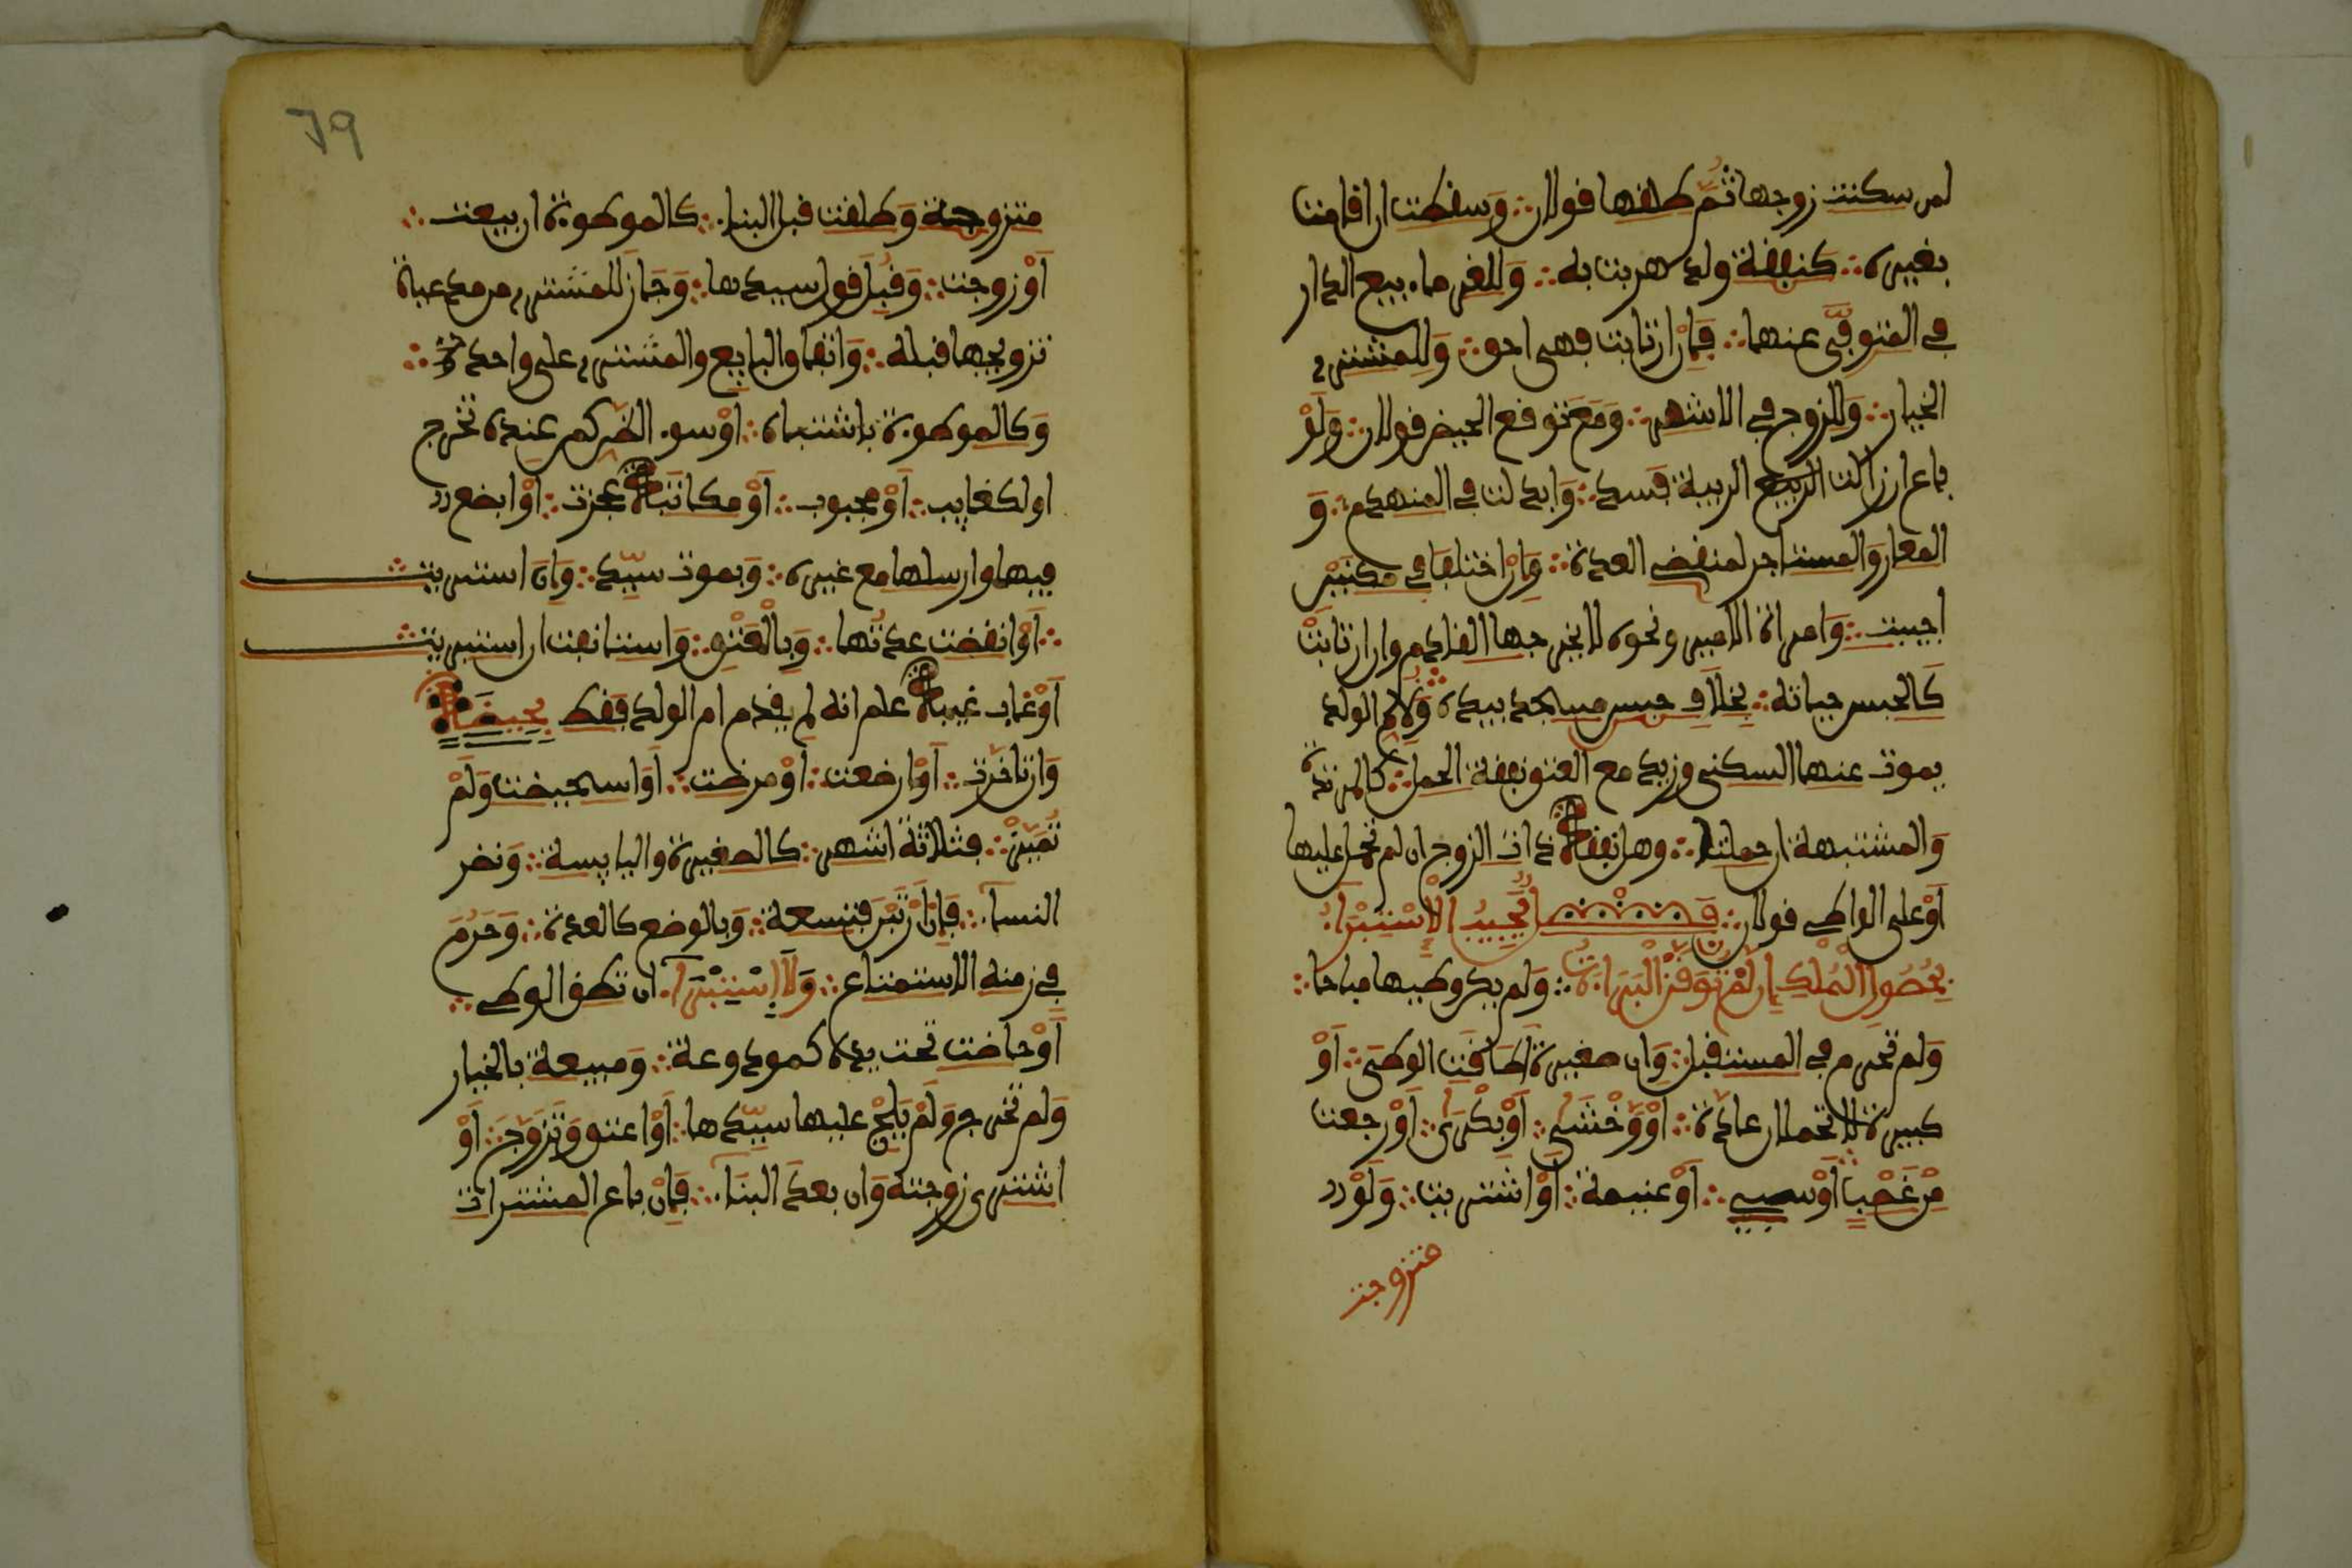 لمن سكنت زوجها ثم طلقها قولان وسقطت ان اقامت
بغيره كنفقة ولد هربت به وللغرماء بيع الدار
في المتوفى عنها فان ارتابت فهي احق وللمشتري
الخيار وللزوج في الاشهر ومع توقع الحيض قولان ولو
باع ان زالت الريبة فسد وابدلت في المنهدم و
المعار والمستاجر لمنقضي العدة وان اختلفا في مكنين
اجيبت وامراة الامير ونحوه لا يخرجها القادم وان ارتابت
كالحبس حياته بخلاف حبس مسجد بيده ولام الولد
يموت عنها السكنى وزيد مع العتق نفقة الحمل كالمرتدة
والمشتبهة ان حملت وهل نفقة ذات الزوج ان لم تحمل عليها
او على الواطي قولان فصل يجب الاستبراء
بحصول الملك ان لم توقن البراءة ولم يكن وطيها مباحا
ولم تحرم في المستقبل وان صغيرة اطاقت الوطئ او
كبيرة لا تحملان عادة او وخشى او بكرى او رجعت
من غصب او سبي او غنيمة او اشتريت ولو
متزوجة
متزوجة وطلقت قبل البناء كالموطوءة ان بيعت
او زوجت وقبل قول سيدها وجاز للمشتري من مدعيه
تزويجها قبله واتفاق البايع والمشتري على واحدة
وكالموطوءة باشتباه او سوء الظن كمن عنده تخرج
او لكغايب او مجبوب او مكاتبة عجزت او ابضع
فيها وارسلها مع غيره وبموت سيد وان استبريت
او انقضت عدتها وبالعتق واستانفت ان استبريت
او غاب غيبة علم انه لم يقدم ام الولد فقط بحيضة
وان تاخرت او ارضعت او مرضت او استحيضت ولم
تميز فثلاثة اشهر كالصغيرة واليايسة ونضر
النساء فان ارتبن فتسعة وبالوضع كالعدة وحرم
في زمنه الاستمتاع ولا استبراء ان تطق الوطي
او حاضت تحت يده كمودوعة ومبيعة بالخيار
ولم تخرج ولم يلج عليها سيدها او اعتق وتزوج او
اشترى زوجته وان بعد البناء فان باع المشترات